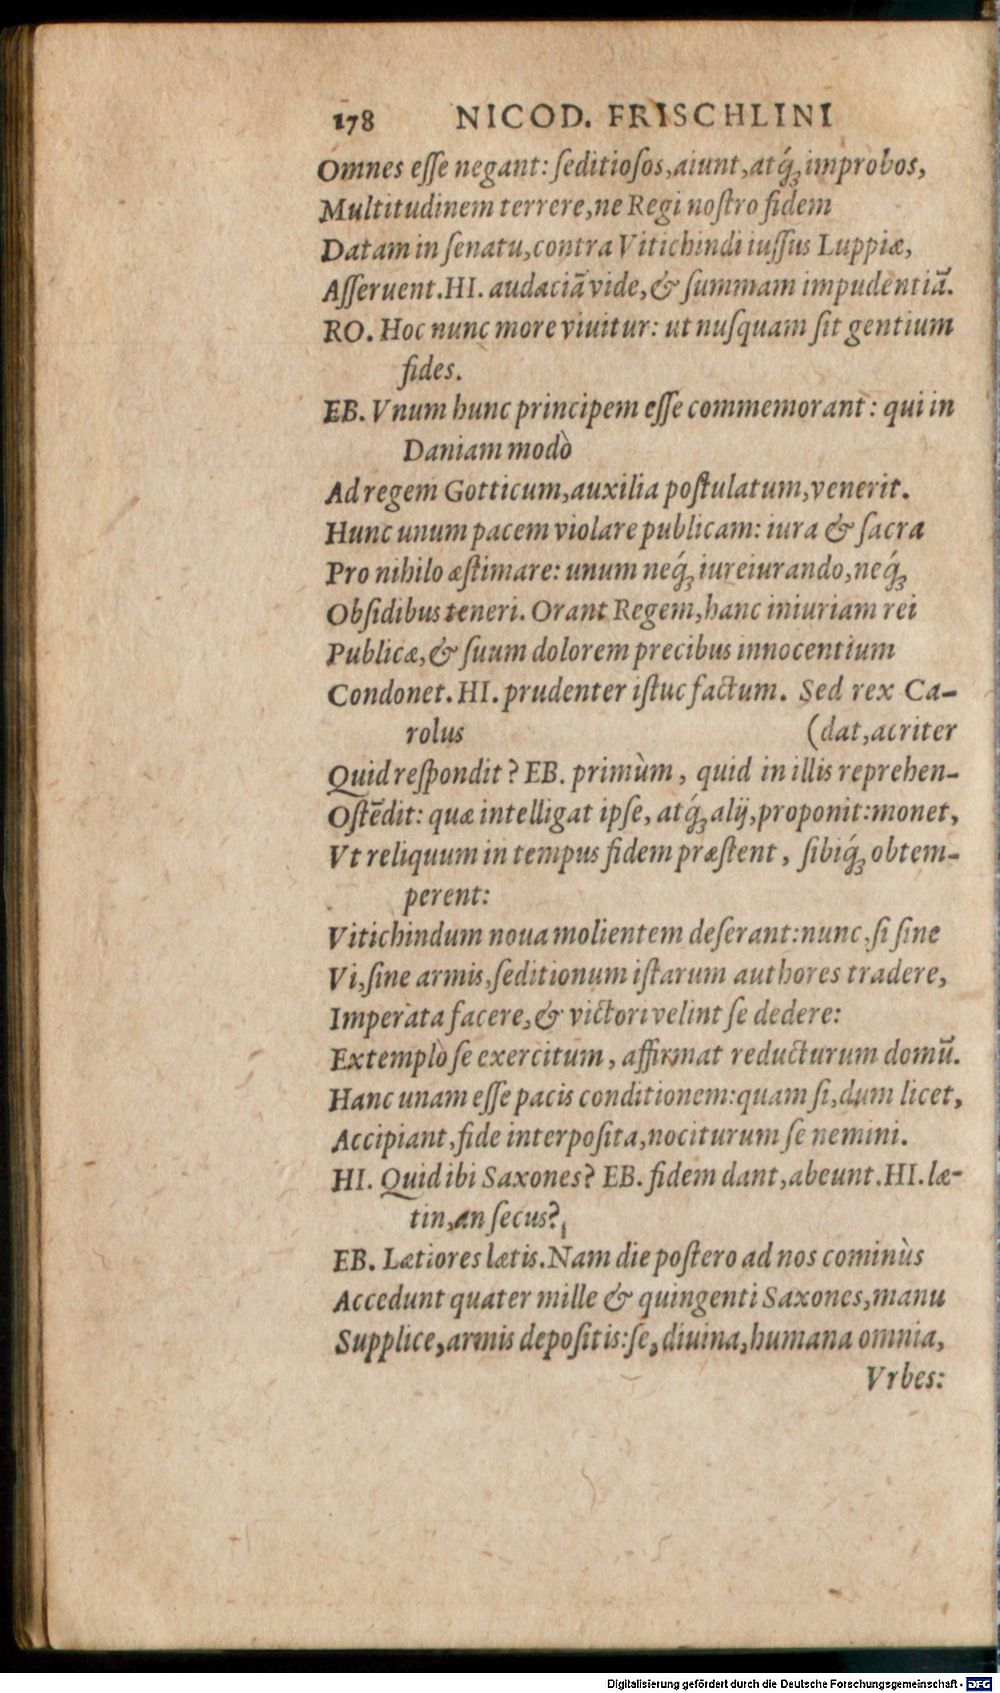 178 NICOD. FRISCHLINI
Omnes eſſe negant: ſeditioſos, aiunt, atq́ꝫ improbos,
Multitudinem terrere, ne Regi noſtro fidem
Datam in ſenatu, contra Vitichindi iuſſus Luppiæ,
Aſſeruent. HI. audaciā vide, & ſummam impudentiā.
RO. Hoc nunc more viuitur: ut nuſquam ſit gentium
fides.
EB. Vnum hunc principem eſſe commemorant: qui in
Daniam modò
Ad regem Gotticum, auxilia poſtulatum, venerit.
Hunc unum pacem violare publicam: iura & ſacra
Pro nihilo æſtimare: unum neq́ꝫ iureiurando, neq́ꝫ
Obſidibus teneri. Orant Regem, hanc iniuriam rei
Publicæ, & ſuum dolorem precibus innocentium
Condonet. HI. prudenter iſtuc factum. Sed rex Ca-
rolus (dat, acriter
Quid reſpondit? EB. primùm, quid in illis reprehen-
Oſtēdit: quæ intelligat ipſe, atq́ꝫ alij, proponit: monet,
Vt reliquum in tempus fidem præſtent, ſibiq́ꝫ obtem-
perent:
Vitichindum noua molientem deſerant: nunc, ſi ſine
Vi, ſine armis, ſeditionum iſtarum authores tradere,
Imperata facere, & victori velint ſe dedere:
Extemplò ſe exercitum, affirmat reducturum domū.
Hanc unam eſſe pacis conditionem: quam ſi, dum licet,
Accipiant, fide interpoſita, nociturum ſe nemini.
HI. Quid ibi Saxones? EB. fidem dant, abeunt. HI. læ-
tin, an ſecus?
EB. Lætiores lætis. Nam die poſtero ad nos cominùs
Accedunt quater mille & quingenti Saxones, manu
Supplice, armis depoſitis: ſe, diuina, humana omnia,
Vrbes:
Digitalisierung gefördert durch die Deutsche Forschungsgemeinschaft - DFG